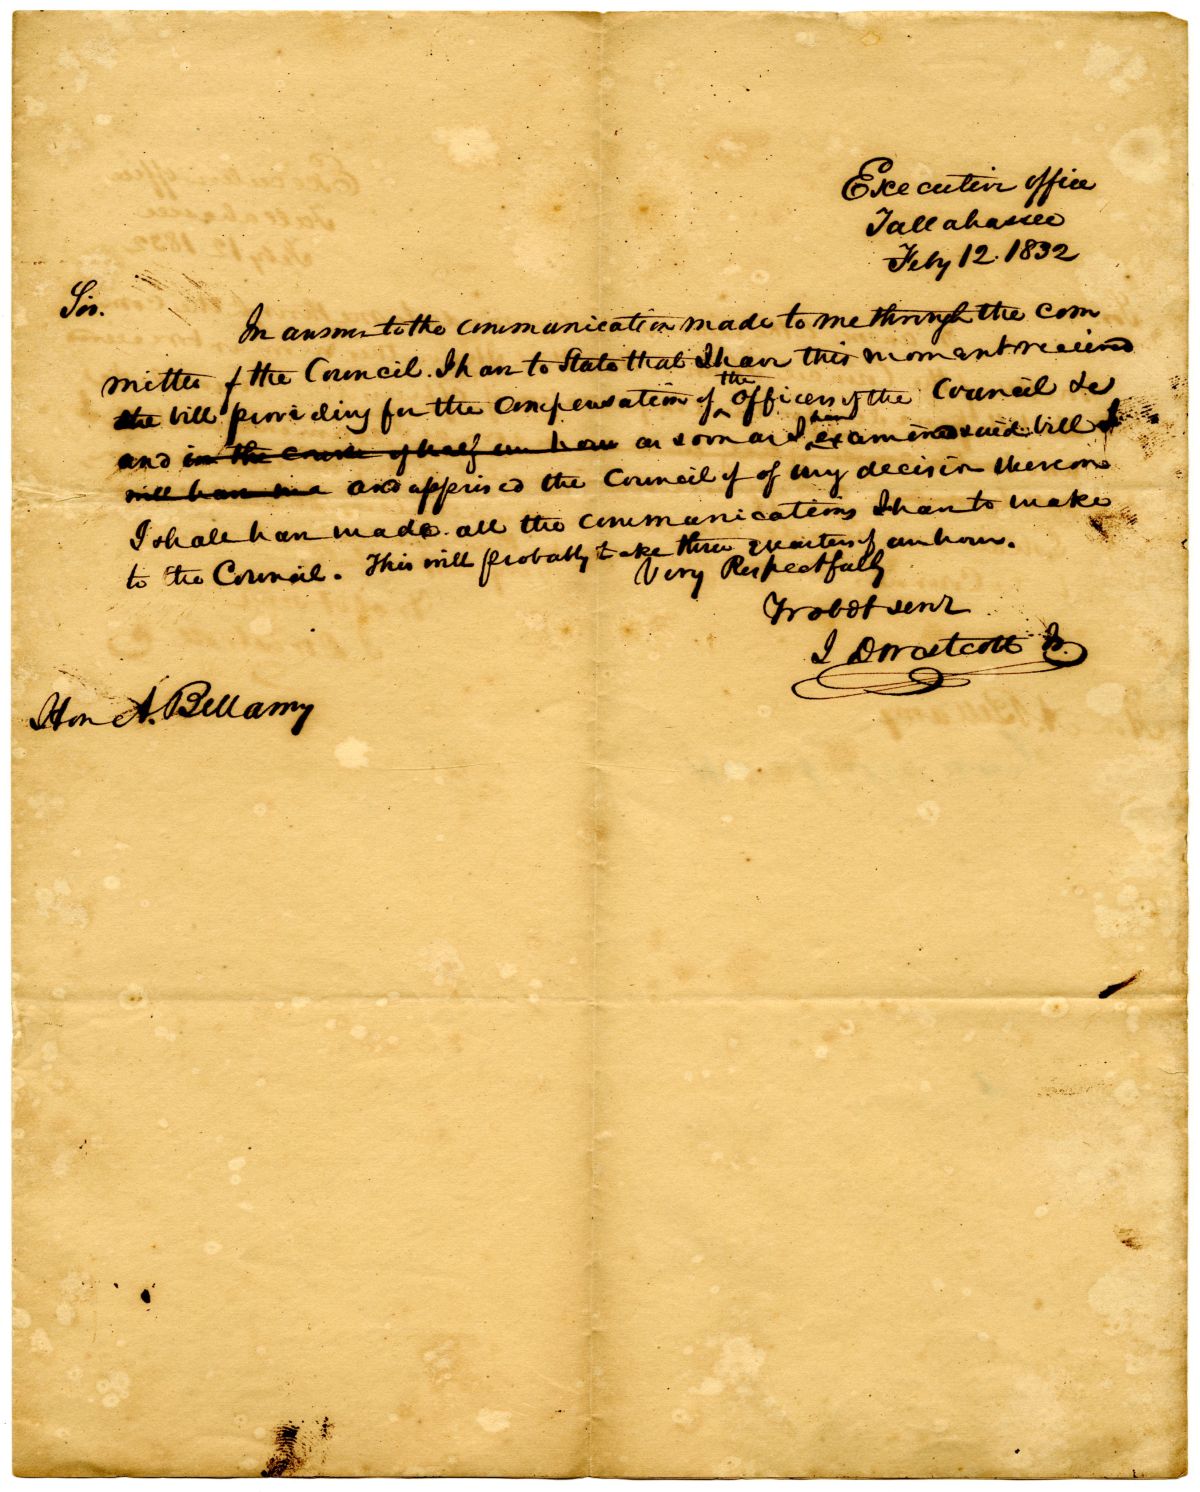 Executive office
Tallahassee
Feby 12. 1832
Sir.
In answer to the communication made to me through the com
mittee of the Council. I have to State that I have this moment received
the bill providing for the compensation of the officers of the Council &c
and in the course of half an hour as soon as I have examined said bill
will have me and apprised the Council of of my decision thereon
I shall have made all the communications I have to make
to the Council. This will probably take three quarters of an hour.
Very Respectfully
Yr obdt servt
J D Westcott Jr.
Hon A. Bellamy